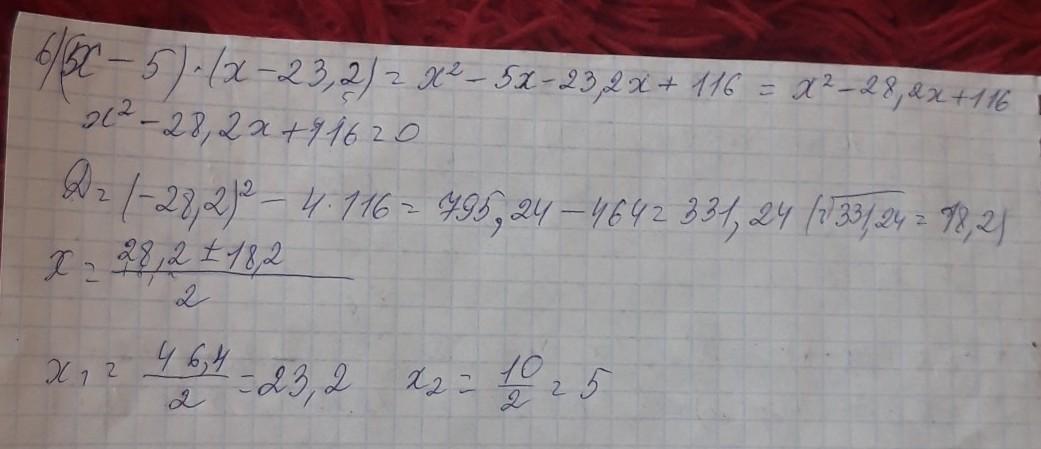 б) (x - 5) · (x - 23,2) = x² - 5x - 23,2x + 116 = x² - 28,2x + 116
x² - 28,2x + 116 = 0
D = (-28,2)² - 4 · 116 = 795,24 - 464 = 331,24 (√331,24 = 18,2)
x = (28,2 ± 18,2) / 2
x₁ = 46,4 / 2 = 23,2 x₂ = 10 / 2 = 5